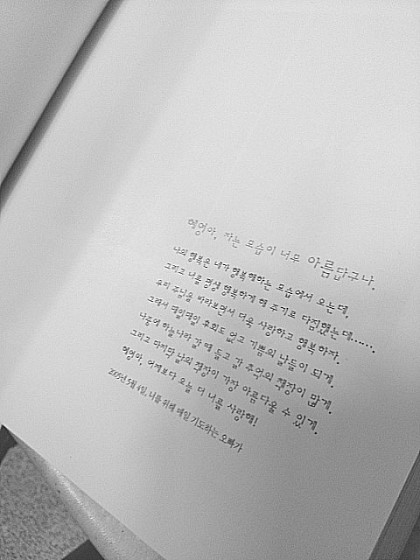 혜영아, 자는 모습이 너무 아름답구나.
나의 행복은 네가 행복해하는 모습에서 오는데,
그리고 너를 평생 행복하게 해 주기로 다짐했는데......
우리 주님을 바라보면서 더욱 사랑하고 행복하자.
그래서 매일매일 후회도 없고 기쁨의 날들이 되게,
나중에 하늘나라 갈 때 들고 갈 추억의 책장이 많게,
그리고 마지막 날의 책장이 가장 아름다울 수 있게.
혜영아, 어제보다 오늘 더 너를 사랑해!
2005년 5월 4일, 너를 위해 매일 기도하는 오빠가